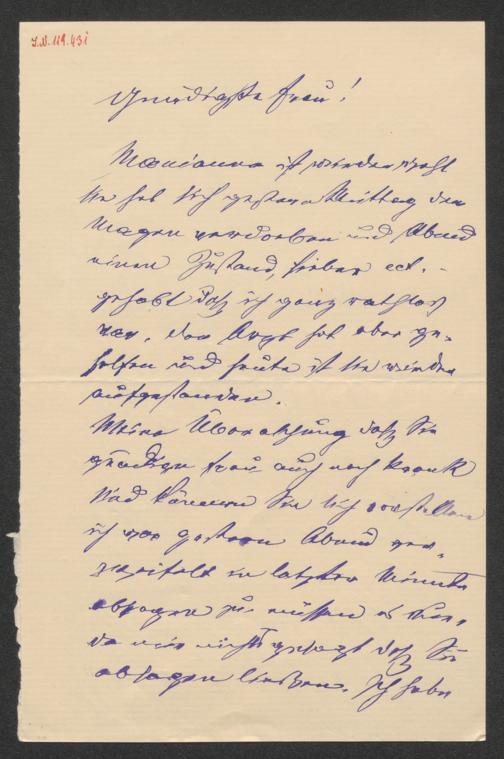 I.N. 119.431
Gnädigste Frau!
Marianna ist wieder wohl
sie hat sich gestern Mittag den
Magen verdorben und Abend
einen Zustand, Fieber ect. -
gehabt daß ich ganz rathlos
war, der Arzt hat aber ge-
holfen und heute ist sie wieder
aufgestanden.
Meine Überraschung daß Sie
gnädige Frau auch noch krank
sind können Sie sich vorstellen
ich war gestern Abend ver-
zweifelt in letzter Minute
absagen zu müssen es wur-
de mir nicht gesagt daß Sie
absagen ließen. Ich habe